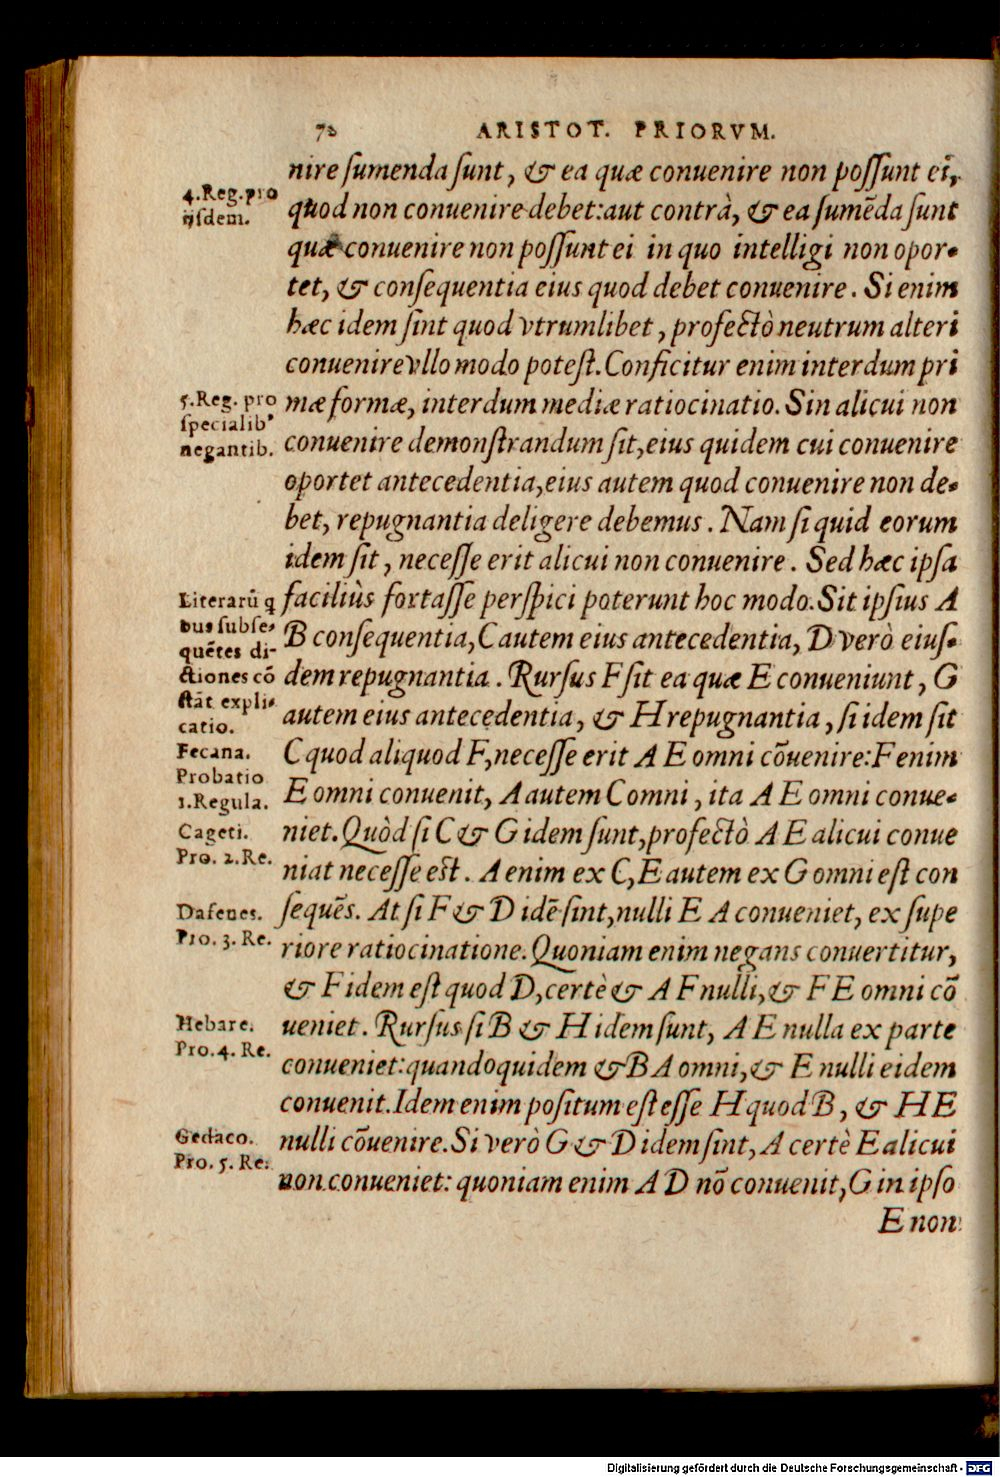 78 ARISTOT. PRIORVM.
nire ſumenda ſunt, & ea quæ conuenire non poſſunt ei,
4.Reg.pro
ijſdem.
quod non conuenire debet: aut contrà, & ea ſumẽda ſunt
quæ conuenire non poſſunt ei in quo intelligi non opor-
tet, & conſequentia eius quod debet conuenire. Si enim
hæc idem ſint quod vtrumlibet, profectò neutrum alteri
conuenire vllo modo poteſt. Conficitur enim interdum pri
5.Reg. pro
ſpecialib'
negantib.
mæ formæ, interdum mediæ ratiocinatio. Sin alicui non
conuenire demonſtrandum ſit, eius quidem cui conuenire
oportet antecedentia, eius autem quod conuenire non de-
bet, repugnantia deligere debemus. Nam ſi quid eorum
idem ſit, neceſſe erit alicui non conuenire. Sed hæc ipſa
Literarũ q
bus ſubſe-
quẽtes di-
ctiones cõ
ſtãt expli-
catio.
faciliùs fortaſſe perſpici poterunt hoc modo. Sit ipſius A
B conſequentia, C autem eius antecedentia, D verò eiuſ-
dem repugnantia. Rurſus F ſit ea quæ E conueniunt, G
autem eius antecedentia, & H repugnantia, ſi idem ſit
Fecana.
Probatio
1.Regula.
C quod aliquod F, neceſſe erit A E omni cõuenire: F enim
E omni conuenit, A autem C omni, ita A E omni conue-
Cageti.
Pro. 2.Re.
niet. Quòd ſi C & G idem ſunt, profectò A E alicui conue
niat neceſſe eſt. A enim ex C, E autem ex G omni eſt con
Dafenes.
Pro. 3. Re.
ſequẽs. At ſi F & D idẽ ſint, nulli E A conueniet, ex ſupe
riore ratiocinatione. Quoniam enim negans conuertitur,
& F idem eſt quod D, certè & A F nulli, & F E omni cõ
Hebare.
Pro.4. Re.
ueniet. Rurſus ſi B & H idem ſunt, A E nulla ex parte
conueniet: quandoquidem & B A omni, & E nulli eidem
conuenit. Idem enim poſitum eſt eſſe H quod B, & H E
Gedaco.
Pro. 5. Re.
nulli cõuenire. Si verò G & D idem ſint, A certè E alicui
non conueniet: quoniam enim A D nõ conuenit, G in ipſo
E non
Digitalisierung gefördert durch die Deutsche Forschungsgemeinschaft - DFG